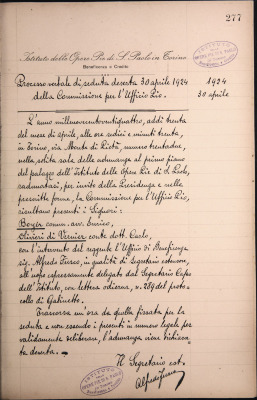 277
Istituto delle Opere Pie di S. Paolo in Torino
Beneficenza e Credito
Processo verbale di seduta deserta 30 aprile 1924
della Commissione per l'Ufficio Pio.
1924
30 aprile
L'anno millenovecentoventiquattro, addì trenta
del mese di aprile, alle ore sedici e minuti trenta,
in Torino, via Monte di Pietà, numero trentadue,
nella solita sala delle adunanze al primo piano
del palazzo dell'Istituto delle Opere Pie di S. Paolo,
radunatasi, per invito della Presidenza e nelle
prescritte forme, la Commissione per l'Ufficio Pio,
risultano presenti i Signori:
Boyer comm. avv. Enrico,
Olivieri di Vernier conte dott. Carlo,
con l'intervento del reggente l'Ufficio di Beneficenza
sig. Alfredo, in qualità di Segretario estensore,
all'uopo espressamente delegato dal Segretario Capo
dell'Istituto, con lettera odierna, n. 289 del proto-
collo di Gabinetto.
Trascorsa un'ora da quella fissata per la
seduta e non essendo i presenti in numero legale per
validamente deliberare, l'adunanza viene dichiara-
ta deserta.
Il Segretario est.
Alfredo